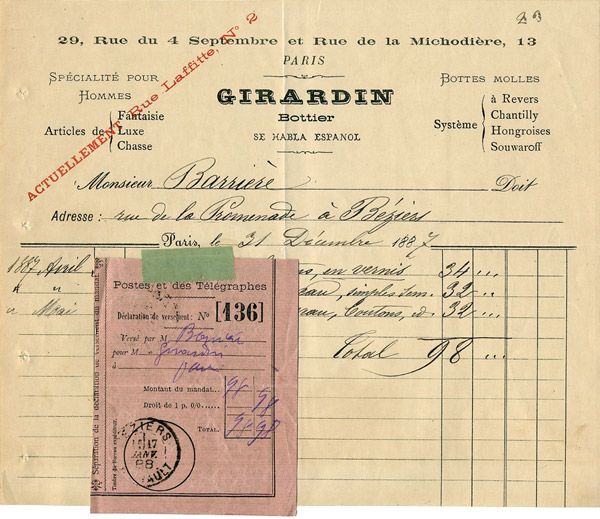 23
29, Rue du 4 Septembre et Rue de la Michodière, 13
PARIS
ACTUELLEMENT Rue Laffitte, No 2
SPÉCIALITÉ POUR
HOMMES
Articles de
Fantaisie
Luxe
Chasse
GIRARDIN
Bottier
SE HABLA ESPANOL
BOTTES MOLLES
Système
à Revers
Chantilly
Hongroises
Souwaroff
Monsieur Barrière Doit
Adresse : rue de la Promenade à Béziers
Paris, le 31 Décembre 1887
1887 Avril en vernis 34 "
" " simples sem. 32 "
" Mai Boutons, id. 32 "
Total 98 "
Postes et des Télégraphes
Déclaration de versement : No [136]
Versé par M
pour M Girardin
à
Montant du mandat... 98
Droit de 1 p. 0/0......
TOTAL.
Séparation de la déclaration de versement du mandat.
Timbre du bureau expéditeur.
BÉZIERS
17
JANV.
88
HÉRAULT